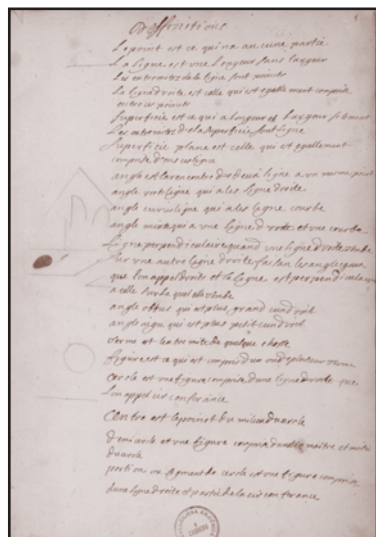 Deffinitions
Le point est ce qui na aucune partie
La Ligne est vne Longeur sans Largeur
Les extremites de la Ligne sont points
La Ligne droite est celle qui est egallement comprise
entre ses points
Superficie est ce qui a longeur et Largeur seullement
Les extremites de la superficie sont Ligne
Superficie plane est celle qui est egallement
comprise dans ses ligne
angle est la rencontre de deux ligne a vn mesme point
angle rectiligne qui a les Ligne droite
angle curviligne qui a les Lignes courbe
angle mixte qui a vne Ligne droite et vne courbe
Ligne perpendiculaire quand vne ligne droite tombe
sur vne autre Ligne droite fait les angles egaux
que lon appel droits et la Ligne est perpendiculaire
a celle sur la quelle tombe
angle obtus qui est plus grand cun droit
angle aigu qui est plus petit cun droit
terme est lextremite de quelque chose
figure est ce qui est compris dun ou de plusieur terme
Cercle est vne figure comprise dune ligne courbe que
Lon appel circonferance
Centre est le point du milieu du cercle
demi cercle est vne figure comprise du diametre et moitie
du cercle
portion ou segment de cercle est vne figure comprise
dune ligne droite et partie de la circonferance